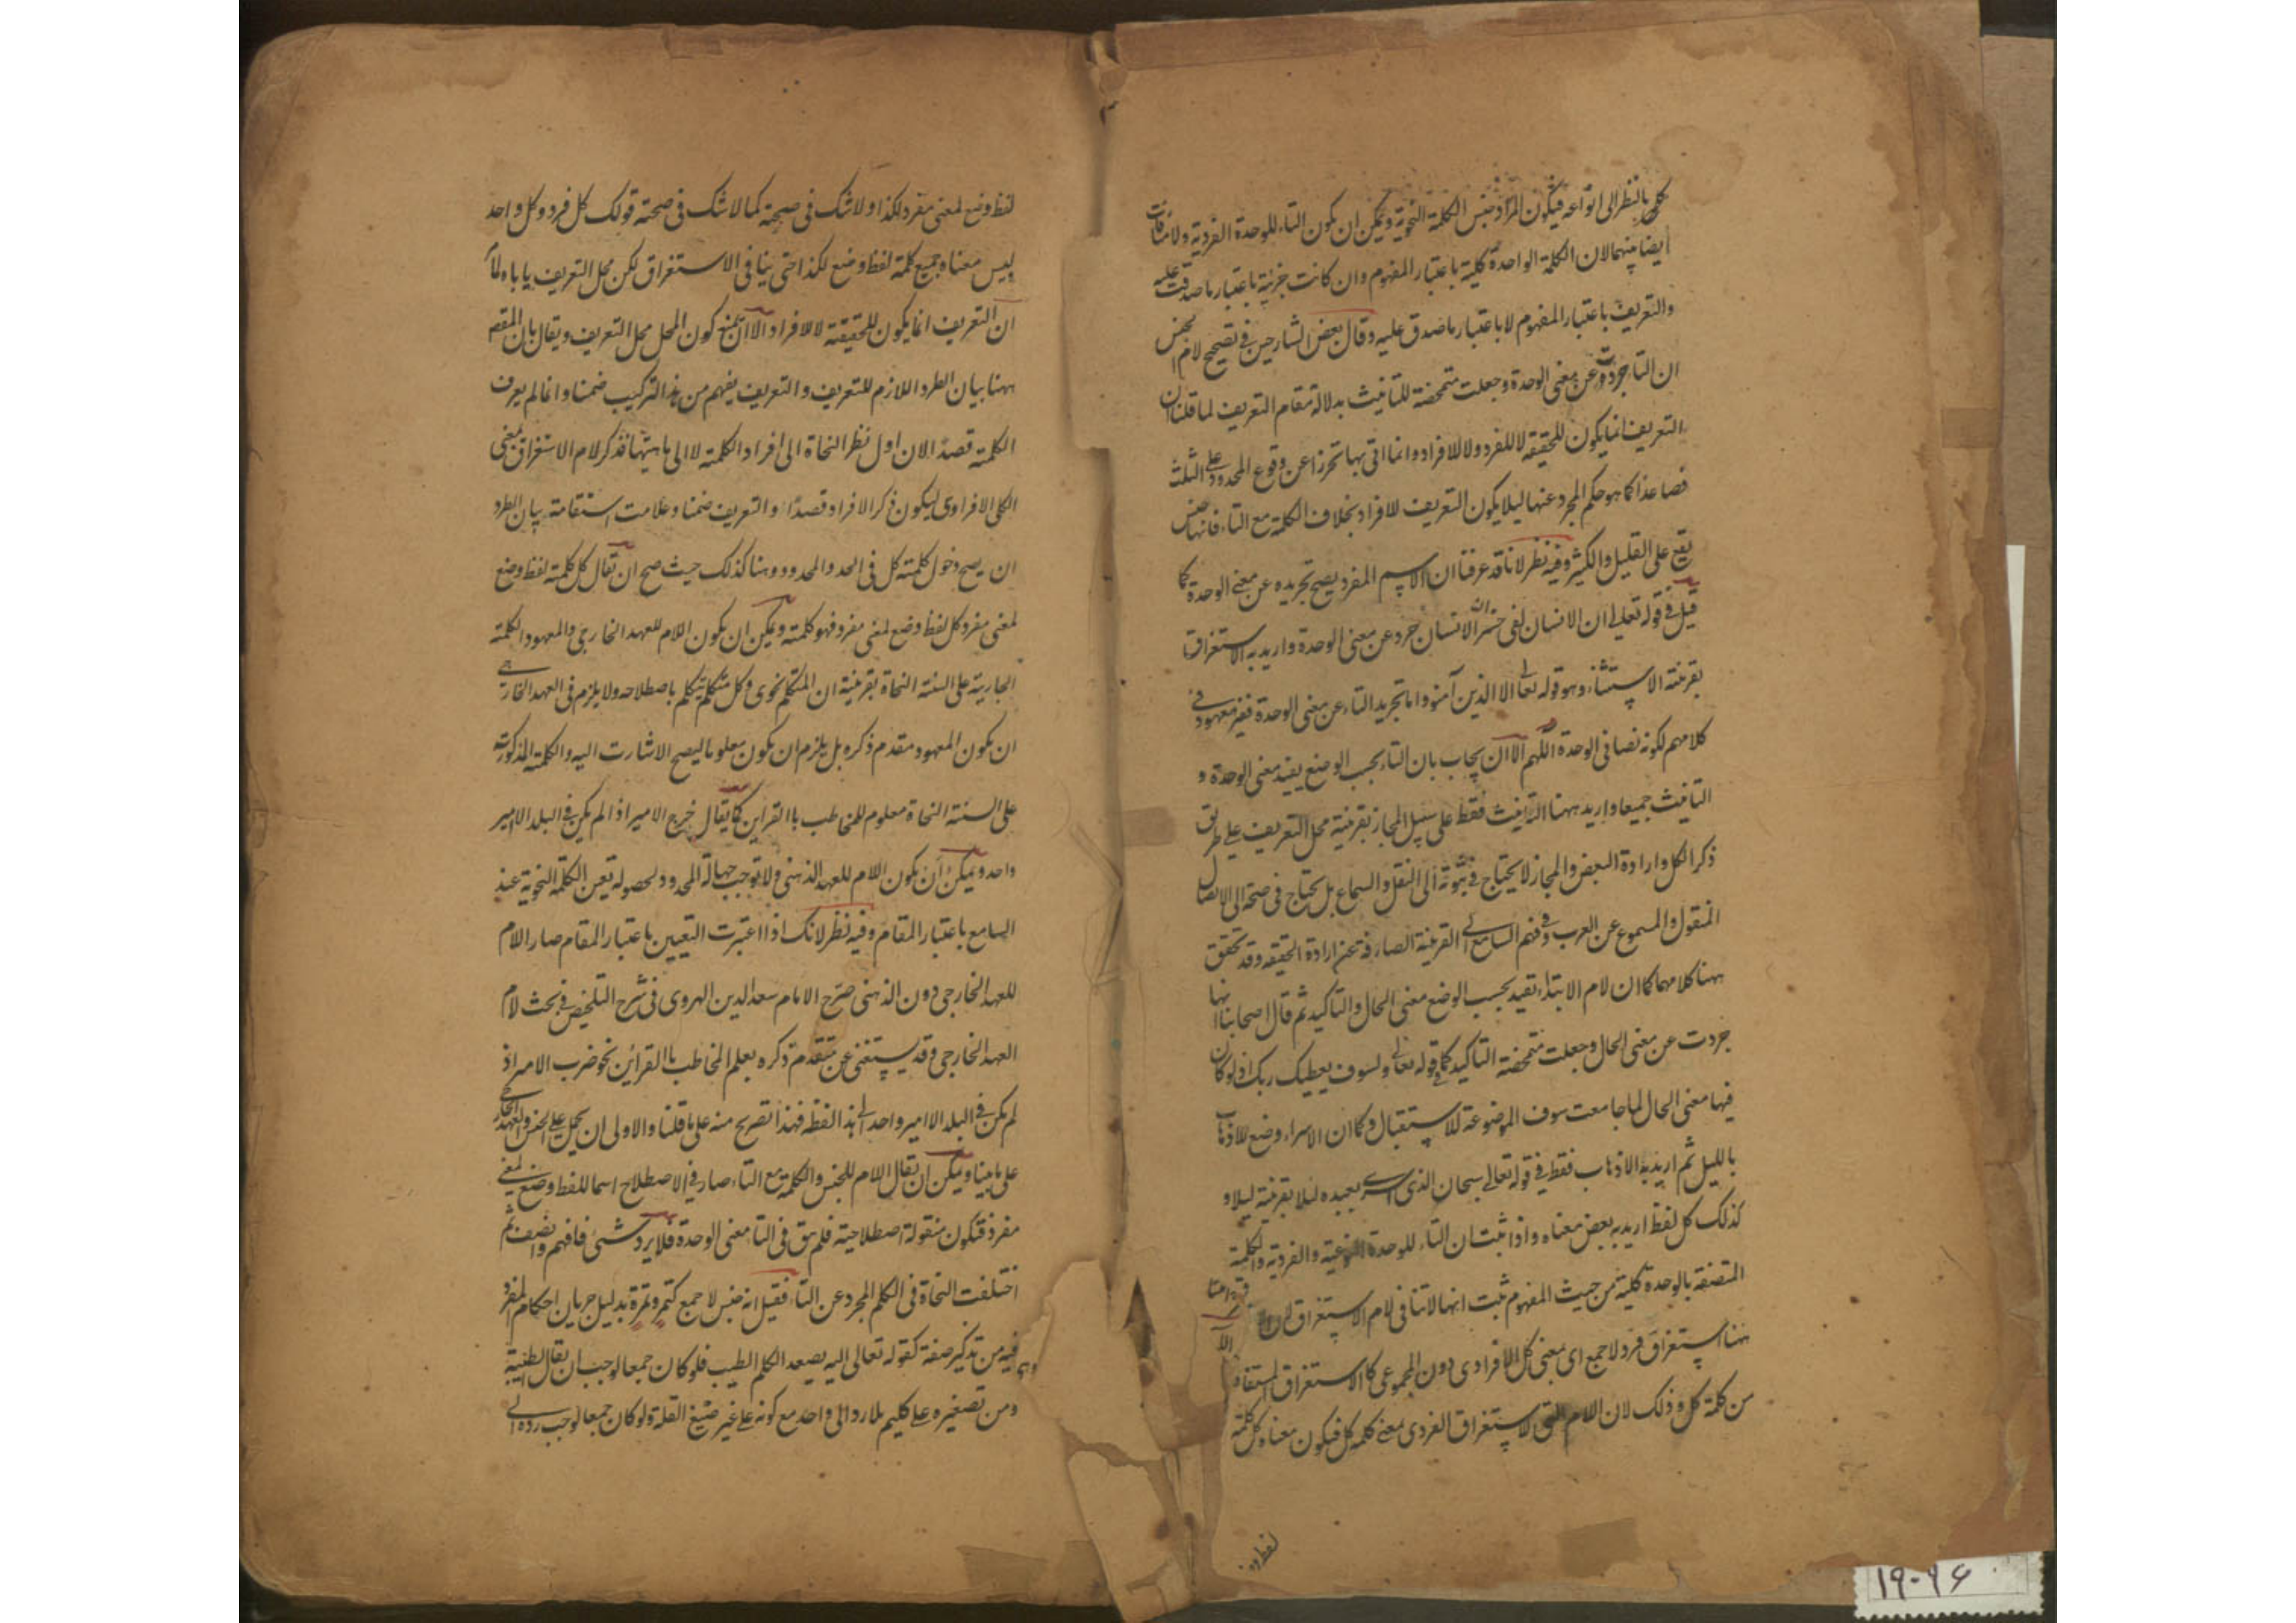 كلى بالنظر الى انواعه فيكون المراد جنس الكلمة النحوية ويمكن ان يكون التاء للوحدة الفردية ولا منافات
ايضا بينهما لان الكلمة الواحدة كلية باعتبار المفهوم وان كانت جزئية باعتبار ما صدقت عليه
والتعريف باعتبار المفهوم لا باعتبار ما صدق عليه وقال بعض الشارحين فى تصحيح لام الجنس
ان التاء جردت عن معنى الوحدة وجعلت متمحضة للتانيث بدلالة مقام التعريف لما قلنا ان
التعريف انما يكون للحقيقة لا للفرد ولا للافراد وانما اتى بها تحرزا عن وقوع المحدود على الثلث
فصاعدا كما هو حكم المجرد عنها ليلا يكون التعريف للافراد بخلاف الكلمة مع التاء فانها جنس
يقع على القليل والكثير وفيه نظر لانا قد عرفنا ان الاسم المفرد يصح تجريده عن معنى الوحدة كما
قيل فى قوله تعالى ان الانسان لفى خسر ان الانسان جرد عن معنى الوحدة واريد به الاستغراق
بقرينة الاستثناء وهو قوله تعالى الا الذين آمنوا واما تجريد التاء عن معنى الوحدة فغير معهود فى
كلامهم لكونه نصا فى الوحدة اللهم الا ان يجاب بان التاء بحسب الوضع يفيد معنى الوحدة و
التانيث جميعا واريد ههنا التانيث فقط على سبيل المجاز بقرينة محل التعريف على طريق
ذكر الكل وارادة البعض والمجاز لا يحتاج فى ثبوته الى النقل والسماع بل يحتاج فى صحته الى الاتصال
المنقول والمسموع عن العرب وفى فهم السامع الى القرينة الصارفة عن ارادة الحقيقة وقد تحقق
ههنا كلامهما كما ان لام الابتداء تفيد بحسب الوضع معنى الحال والتاكيد ثم قال اصحابنا انها
جردت عن معنى الحال وجعلت متمحضة التاكيد كما فى قوله تعالى ولسوف يعطيك ربك اذ لو كان
فيها معنى الحال لما جامعت سوف الموضوعة للاستقبال وكما ان الاسراء وضع للاذهاب
بالليل ثم اريد به الاذهاب فقط فى قوله تعالى سبحان الذى اسرى بعبده ليلا بقرينة ليلا و
كذلك كل لفظ اريد به بعض معناه واذا ثبت ان التاء للوحدة النوعية والفردية والكلمة
المتصفة بالوحدة كلية من حيث المفهوم ثبت انها لا تنافى لام الاستغراق لان
ههنا استغراق فرد لا جمع اى بمعنى كل الافرادى دون المجموعى كالاستغراق المستفاد
من كلمة كل وذلك لان اللام التى لاستغراق الفردى بمعنى كلمة كل فيكون معناه كل كلمة
لفظ وضع
لفظ وضع لمعنى مفرد لكذا ولا شك فى صحته كما لا شك فى صحة قولك كل فرد وكل واحد
ليس معناه جميع كلمة لفظ وضع لكذا حتى ينافى الاستغراق لكن محل التعريف ياباه لما مر
ان التعريف انما يكون للحقيقة لا للافراد الا ان يمنع كون المحل محل التعريف ويقال بان المقصد
ههنا بيان الطرد اللازم للتعريف والتعريف يفهم من هذا التركيب ضمنا وانما لم يعرف
الكلمة قصدا لان اول نظر النحاة الى افراد الكلمة لا الى ماهيتها فذكر لام الاستغراق بمعنى
الكلى الافرادى ليكون ذكر الافراد قصدا والتعريف ضمنا وعلامت استقامة بيان الطرد
ان يصح دخول كلمة كل فى الحد والمحدود وهنا كذلك حيث صح ان تقال كل كلمة لفظ وضع
لمعنى مفرد وكل لفظ وضع لمعنى مفرد فهو كلمة ويمكن ان يكون اللام للعهد الخارجى والمعهود الكلمة
الجارية على السنة النحاة بقرينة ان المتكلم نحوى وكل متكلم يتكلم باصطلاحه ولا يلزم فى العهد الخارجى
ان يكون المعهود مقدم ذكره بل يلزم ان يكون معلوما ليصح الاشارت اليه والكلمة المذكورة
على السنة النحاة معلوم للمخاطب باالقراين كما يقال خرج الامير اذا لم يكن فى البلد الا امير
واحد ويمكن ان يكون اللام للعهد الذهنى ولا توجب جهالة المحدود لحصوله تعين الكلمة النحوية عند
السامع باعتبار المقام وفيه نظر لانك اذا اعتبرت التعيين باعتبار المقام صار اللام
للعهد الخارجى دون الذهنى صرح الامام سعد الدين الهروى فى شرح التلخيص فى بحث لام
العهد الخارجى وقد يستغنى عن تقدم ذكره بعلم المخاطب باالقراين نحو ضرب الامير اذ
لم يكن فى البلد الا امير واحد الى هذا لفظه فهذا تصريح منه على ما قلنا والاولى ان يحمل على الجنس والعهد الخارجى
على ما بينا ويمكن ان تقال اللام للجنس والكلمة مع التاء صار فى الاصطلاح اسما للفظ وضع لمعنى
مفرد فتكون منقولة اصطلاحية فلم يبق فى التاء معنى الوحدة فلا يرد شئ فافهم وانصف ثم
اختلفت النحاة فى الكلم المجرد عن التاء فقيل انه جنس لا جمع كتمر وتمرة بدليل جريان احكام المفرد
فيه من تذكير صفة كقوله تعالى اليه يصعد الكلم الطيب فلو كان جمعا لوجب ان يقال الطيبة
ومن تصغيره على كليم بلا رد الى واحد مع كونه على غير صيغ القلة ولو كان جمعا لوجب رده الى
۱۹۰۹۶